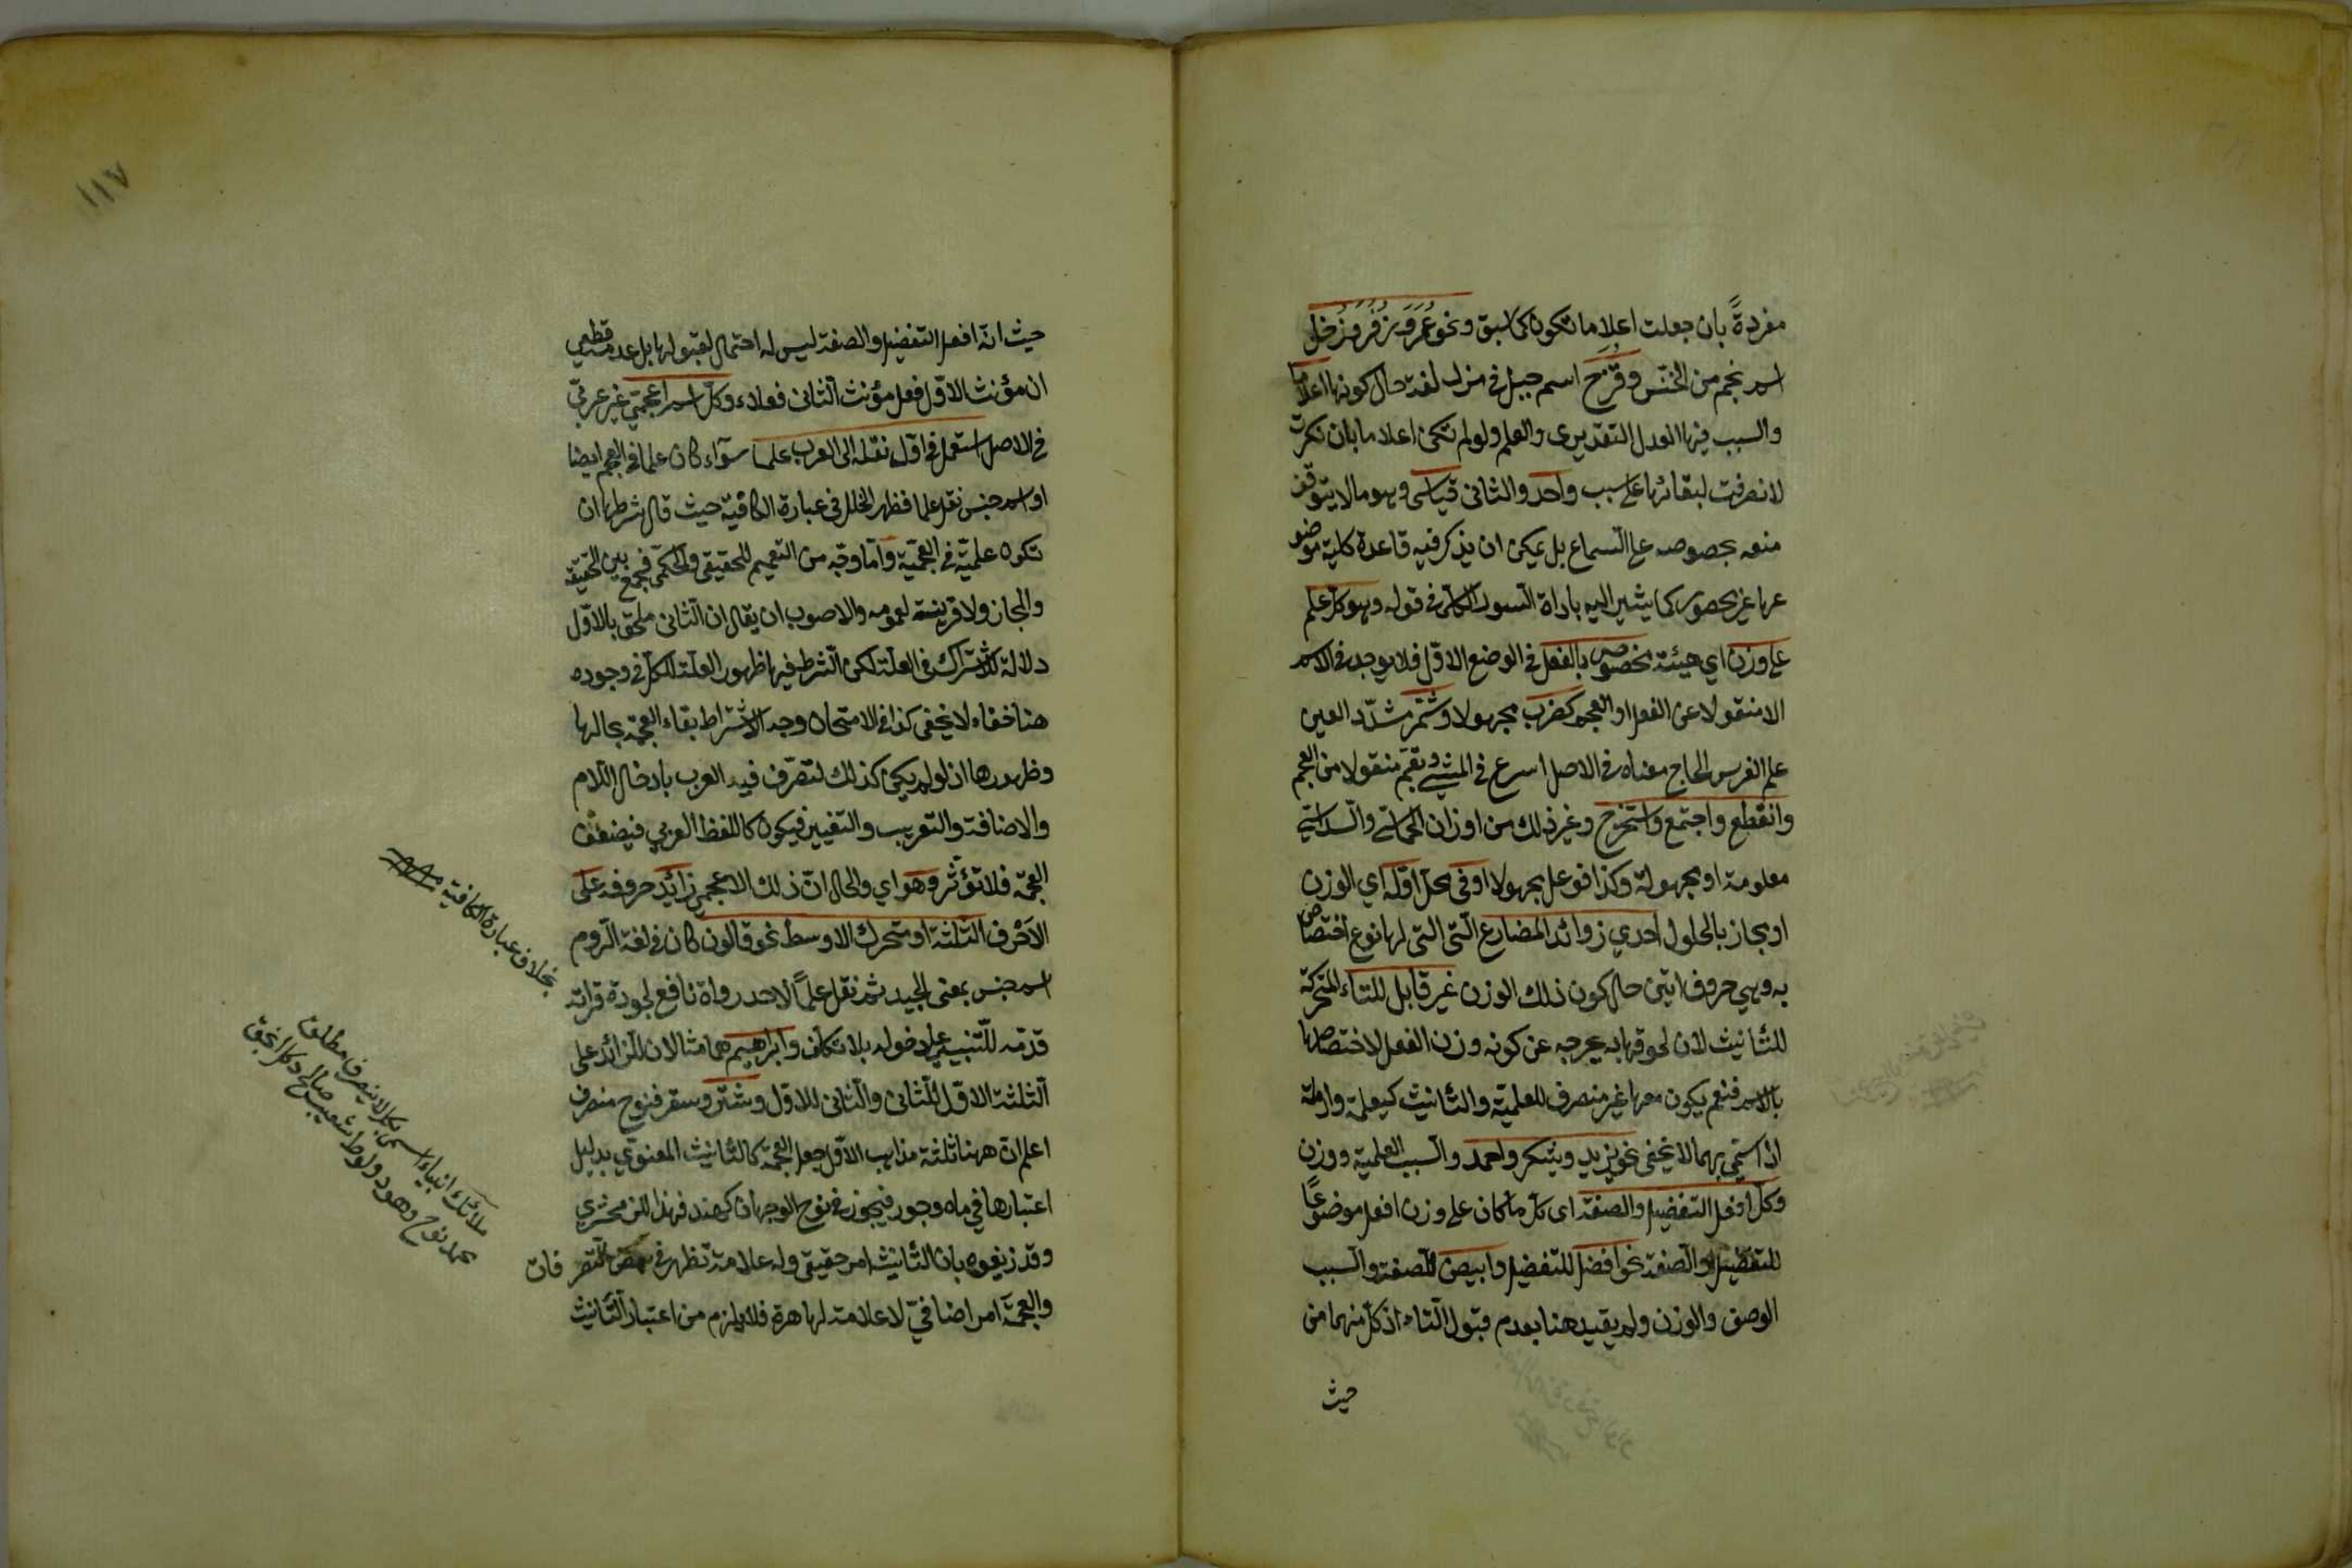 مفردةً بان جعلت اعلاما تكون كما سبق ونحو عُمَرَ وزُفَرَ وزُحَل
اسم نجم من الخنّس وقُزَح اسم جبل في مزدلفة حال كونها اعلاما
والسبب فيها العدل التقديرى والعلم ولو لم تكن اعلاما بان نكرت
لانصرفت لبقائها على سبب واحد والثانى قياسى وهو ما لا يتوقف
منعه بخصوصه على السماع بل يمكن ان يذكر فيه قاعدة كلية موضو
عها غير محصور كما يشير اليه باداة السور الكلّى في قوله وهو كل علم
على وزن اي هيئة مخصوص بالفعل في الوضع الاوّل فلا يوجد في الاسم
الا منقولا عن الفعل او العجم كضرب مجهولا وشمّر مشدّد العين
علم الفرس الحاج معناه في الاصل اسرع في المشي وبقّم منقولا من العجم
وانقطع واجتمع واستخرج وغير ذلك من اوزان الخماسي والسداسي
معلومة او مجهولة وكذا فوعل مجهولا او في محل اوّله اي الوزن
او مجاز بالحلول احدي زوائد المضارع التى التى لها نوع اختصاص
به وهي حروف اتين حال كون ذلك الوزن غير قابل للتاء المتحركة
للتأنيث لان لحوقها به يخرجه عن كونه وزن الفعل لاختصاصها
بالاسم فنعم يكون معها غير منصرف للعلميّة والتأنيث كيعلمة وارملة
اذا سمّي بهما لا يخفى نحو يزيد ويشكر واحمد والسبب العلمية ووزن
وكل افعل التفضيل والصفة اى كل ما كان على وزن افعل موضوعًا
للتفضيل او الصفة نحو افضل للتفضيل وابيض للصفة والسبب
الوصف والوزن ولم يقيد هنا بعدم قبول التاء اذ كل منهما من
حيث
١١٧
حيث انّه افعل التفضيل والصفة ليس له احتمال لقبولها بل عدمه قطعي
ان مؤنث الاوّل فعلى مؤنث الثانى فعلاء وكل اسم اعجميّ غير عربيّ
في الاصل استعمل في اوّل نقله الى العرب علما سوآء كان علما في العجم ايضا
او اسم جنس نقل علما فظهر الخلل في عبارة الكافية حيث قال شرطها ان
تكون علميّة في العجميّة وامّا وجّه من التعميم للحقيقى والحكمى فجمع بين الحقيقة
والمجاز ولا قرينة لعمومه والاصوب ان يقال ان الثانى ملحق بالاوّل
دلالة للاشتراك في العلّة لكن الشرط فيها ظهور العلة للكل في وجوده
هنا خفاء لا يخفى كذا في الامتحان وجه الاشتراط بقاء العجمة بحالها
وظهورها اذ لو لم يكن كذلك لتصرّف فيه العرب بادخال اللام
والاضافة والتعريب والتغيير فيكون كاللفظ العربي فيضعف
العجمة فلا تؤثّر وهو اي والحال انّ ذلك الاعجمي زائد حروفه على
الاحرف الثلثة او متحرك الاوسط نحو قالون كان في لغة الروم
اسم جنس بمعنى الجيد ثم نقل علمًا لاحد رواة نافع لجودة قرائته
قدمه للتنبيه على دخوله بلا تكلف وابراهيم هما مثالان للزائد على
الثلثة الاوّل للثانى والثانى للاوّل وشتر وسقر فنوح منصرف
اعلم ان ههنا ثلثة مذاهب الاوّل جعل العجمة كالتأنيث المعنوي بدليل
اعتبارها في ماه وجور فيجوز في نوح الوجهان كهند فهذا للزمخشري
وقد زيّفوه بان التأنيث امر حقيقى وله علامة تظهر في بعض التصرفات
والعجمة امر اضافيّ لا علامة لها فلا يلزم من اعتبار التأنيث
بخلاف عبارة الكافية
ملائك انبياء اسمى كل لا ينصرف مطلق
محمد نوح وهود ولوط شعيب صالح